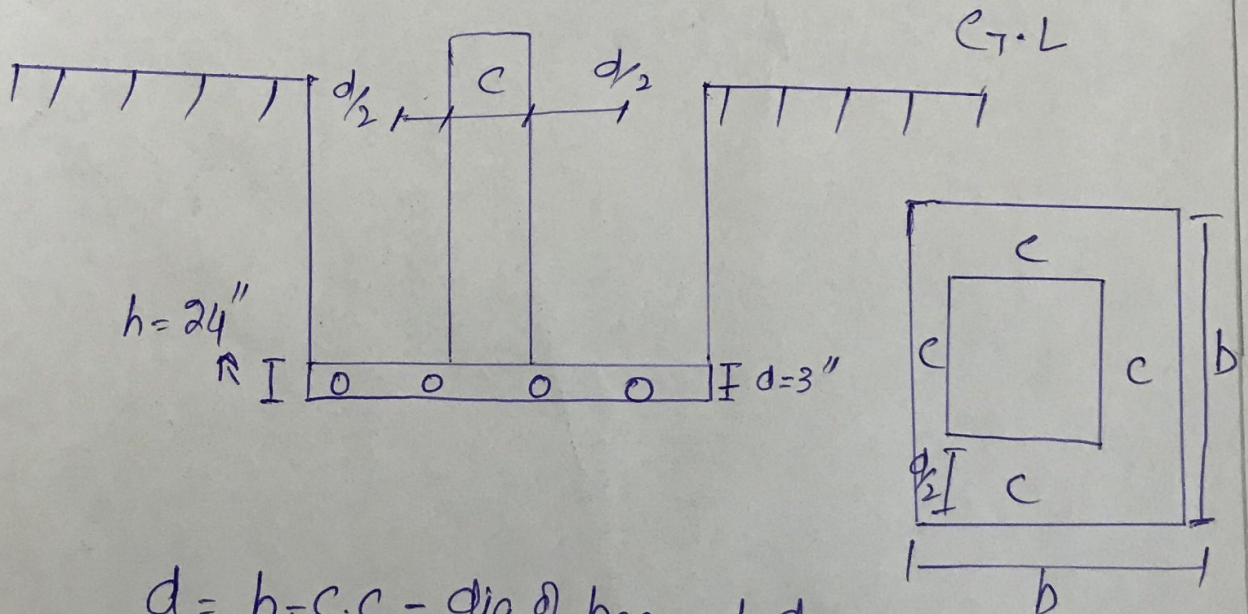 G.L
d/2
C
d/2
h = 24"
d=3"
C
C
C
b
d/2
C
b
d = h - C.C - dia of